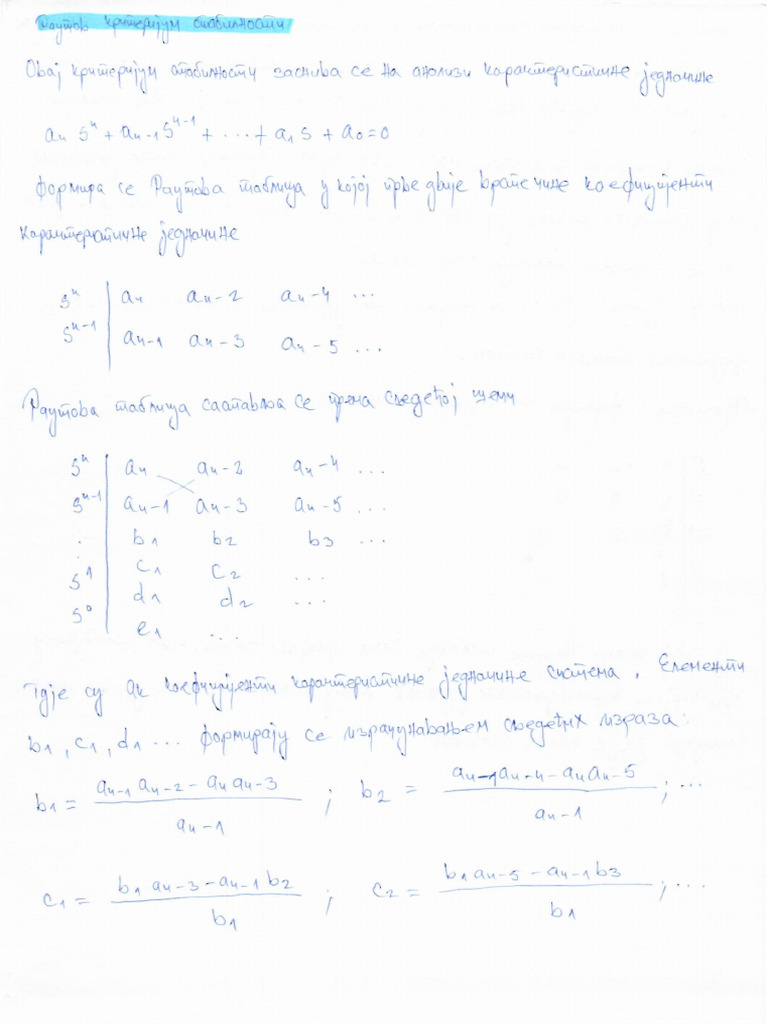 Раутов критеријум стабилности
Овај критеријум стабилности заснива се на анализи карактеристичне једначине
aₙ sⁿ + aₙ₋₁ sⁿ⁻¹ + ... + a₁ s + a₀ = 0
Формира се Раутова таблица у којој прве двије врсте чине коефицијенти
карактеристичне једначине
sⁿ | aₙ aₙ₋₂ aₙ₋₄ ...
sⁿ⁻¹ | aₙ₋₁ aₙ₋₃ aₙ₋₅ ...
Раутова таблица саставља се према сљедећој шеми
sⁿ | aₙ aₙ₋₂ aₙ₋₄ ...
sⁿ⁻¹ | aₙ₋₁ aₙ₋₃ aₙ₋₅ ...
. | b₁ b₂ b₃ ...
. | c₁ c₂ ...
s¹ | d₁ d₂ ...
s⁰ | e₁ ...
Гдје су aк коефицијенти карактеристичне једначине система. Елементи
b₁, c₁, d₁ ... формирају се израчунавањем сљедећих израза:
b₁ = (aₙ₋₁ aₙ₋₂ - aₙ aₙ₋₃) / aₙ₋₁ ; b₂ = (aₙ₋₁ aₙ₋₄ - aₙ aₙ₋₅) / aₙ₋₁ ; ...
c₁ = (b₁ aₙ₋₃ - aₙ₋₁ b₂) / b₁ ; c₂ = (b₁ aₙ₋₅ - aₙ₋₁ b₃) / b₁ ; ...